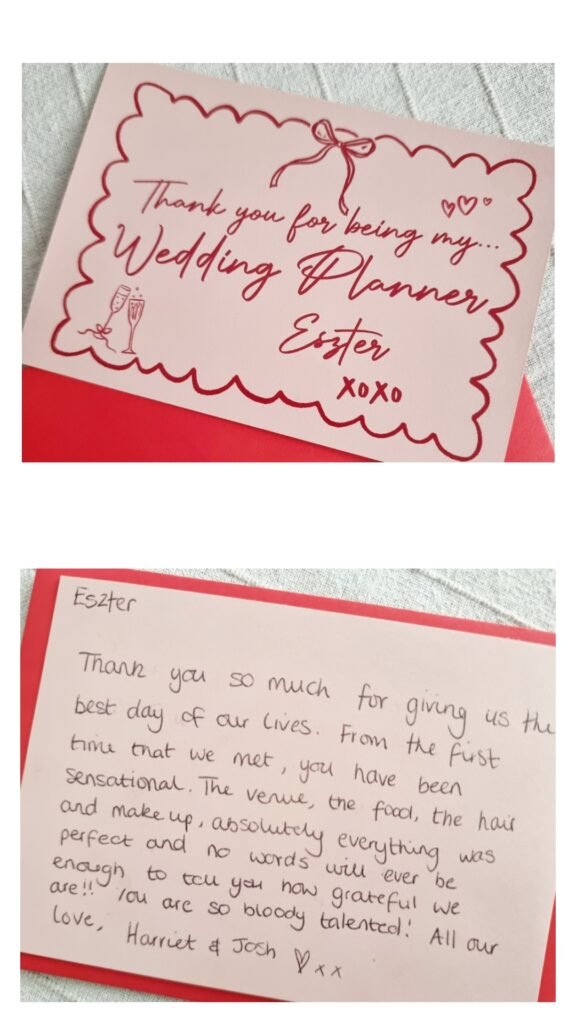 Thank you for being my...
Wedding Planner
Eszter
xoxo
Eszter
Thank you so much for giving us the
best day of our lives. From the first
time that we met, you have been
sensational. The venue, the food, the hair
and makeup, absolutely everything was
perfect and no words will ever be
enough to tell you how grateful we
are!! You are so bloody talented! All our
love, Harriet & Josh ♡ x x